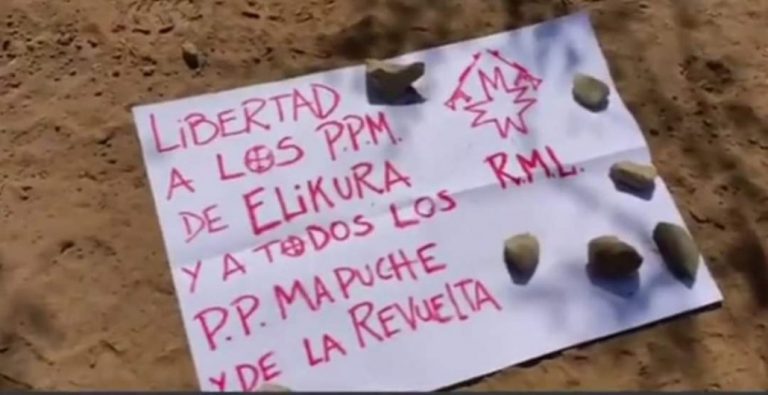 LIBERTAD
A LOS P.P.M.
DE ELIKURA
Y A TODOS LOS
P.P. MAPUCHE
Y DE LA REVUELTA
R.M.L.